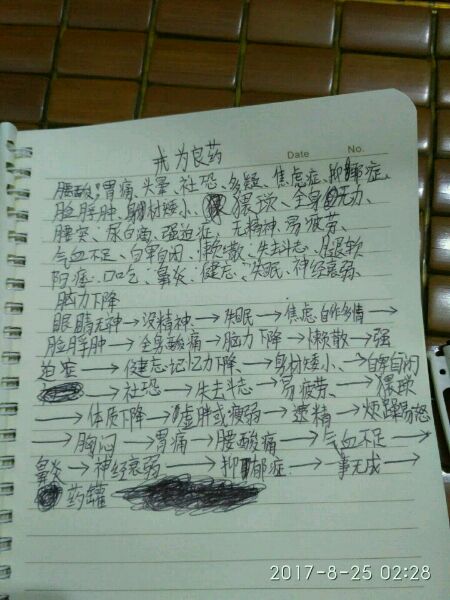 戒为良药
Date No.
腰酸,胃痛、头晕、社恐、多疑、焦虑症、抑郁症、
脸浮肿、身材矮小、猥琐、全身无力、
腰突、尿白、强迫症、无精神、易疲劳、
气血不足、自卑自闭、懒散、失去斗志、腿软
阳痿、口吃、鼻炎、健忘、失眠、神经衰弱、
脑力下降
眼睛无神→没精神、→失眠→焦虑自作多情→
脸浮肿→全身酸痛→脑力下降→懒散→强
迫症→健忘记忆力下降、→身材矮小、→自卑自闭
→社恐→失去斗志→易疲劳、→猥琐
→体质下降→虚胖或瘦弱→遗精→烦躁易怒
→胸闷→胃痛→腰酸痛→气血不足→
鼻炎→神经衰弱→抑郁症→一事无成→
药罐
2017-8-25 02:28